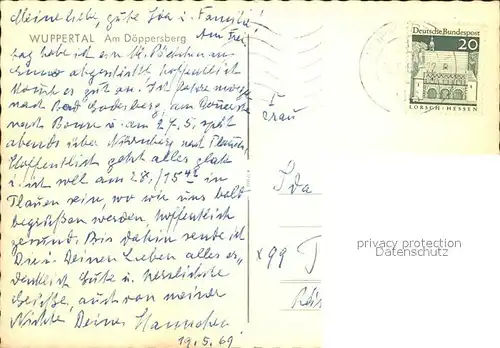 Meine liebe, gute Ida u. Familie!
WUPPERTAL Am Döppersberg
Am Frei
tag habe ich ein Päckchen an
abgeschickt hoffentlich
kommt es gut an. Ich fahre morgen
nach Bad Godesberg, am Donnerstag
nach Bonn u. am 27.5. spät
abends über Nürnberg nach Plauen.
Hoffentlich geht alles glatt
u. ich will am 28./15⁴⁸ in
Plauen sein, wo wir uns bald
begrüßen werden, hoffentlich
gesund. Bis dahin sende ich
Dir u. Deinen Lieben alles er-
denklich Gute u. herzlichste
Grüße, auch von meiner
Nichte Deine Hannchen
19.5.69.
Deutsche Bundespost
20
LORSCH · HESSEN
Frau
Ida
x 99 P
privacy protection
Datenschutz